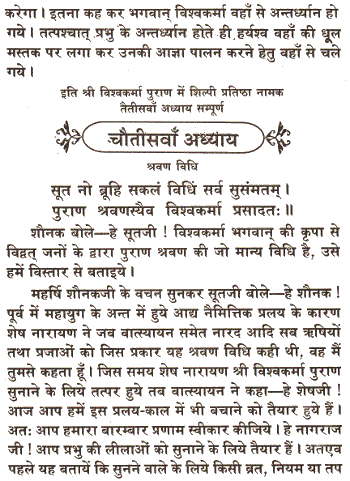 करेगा। इतना कह कर भगवान् विश्वकर्मा वहाँ से अन्तर्ध्यान हो
गये। तत्पश्चात् प्रभु के अन्तर्ध्यान होते ही हर्यश्व वहाँ की धूल
मस्तक पर लगा कर उनकी आज्ञा पालन करने हेतु वहाँ से चले
गये।
इति श्री विश्वकर्मा पुराण में शिल्पी प्रतिष्ठा नामक
तैतीसवाँ अध्याय सम्पूर्ण
चौतीसवाँ अध्याय
श्रवण विधि
सूत नो ब्रूहि सकलं विधिं सर्व सुसंमतम्।
पुराण श्रवणस्यैव विश्वकर्मा प्रसादतः॥
शौनक बोले—हे सूतजी ! विश्वकर्मा भगवान् की कृपा से
विद्वत् जनों के द्वारा पुराण श्रवण की जो मान्य विधि है, उसे
हमें विस्तार से बताइये।
महर्षि शौनकजी के वचन सुनकर सूतजी बोले—हे शौनक !
पूर्व में महायुग के अन्त में हुये आद्य नैमित्तिक प्रलय के कारण
शेष नारायण ने जब वात्स्यायन समेत नारद आदि सब ऋषियों
तथा प्रजाओं को जिस प्रकार यह श्रवण विधि कही थी, वह मैं
तुमसे कहता हूँ। जिस समय शेष नारायण श्री विश्वकर्मा पुराण
सुनाने के लिये तत्पर हुये तब वात्स्यायन ने कहा—हे शेषजी !
आज आप हमें इस प्रलय-काल में भी बचाने को तैयार हुये हैं।
अतः आप हमारा बारम्बार प्रणाम स्वीकार कीजिये। हे नागराज
जी ! आप प्रभु की लीलाओं को सुनाने के लिये तैयार हैं। अतएव
पहले यह बतायें कि सुनने वाले के लिये किसी व्रत, नियम या तप